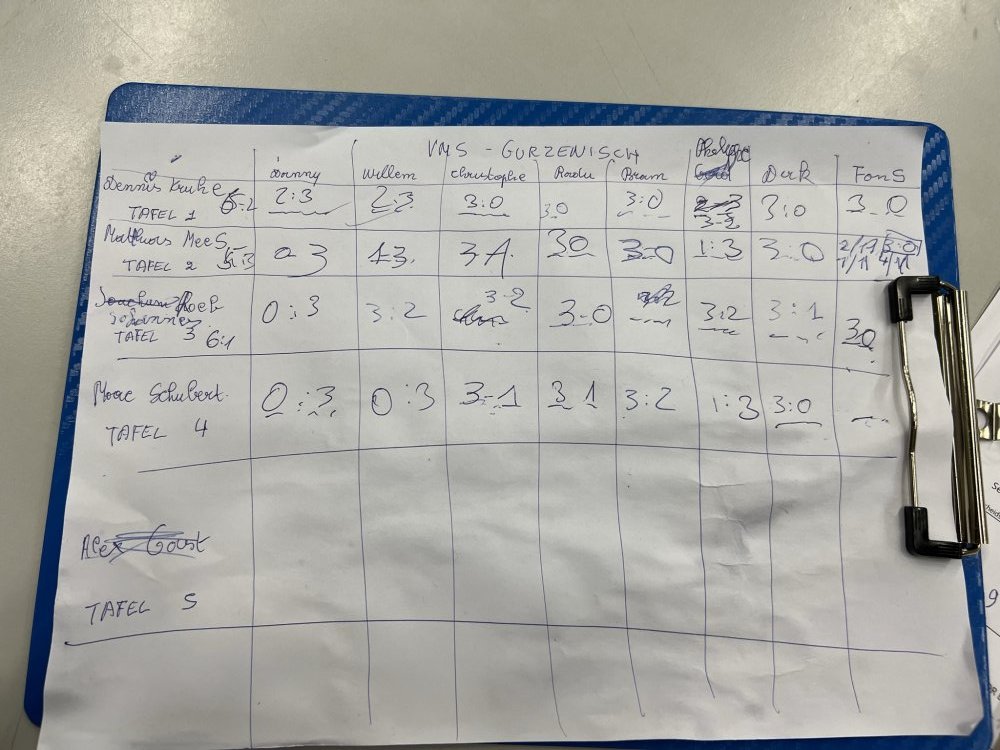 VMS - GURZENISCH
Danny Willem Christophe Radu Bram Philippe Dirk Fons
Dennis Kruhe 2:3 2:3 3:0 3:0 3:0 3-2 3:0 3-0
TAFEL 1 6-2
Mathias Mees 0-3 1-3 3-1 30 3-0 1:3 3-0 2/11 3:0
TAFEL 2 5-3 7/11 4/11
0:3 3:2 3-2 3-0 3:2 3:1 30
Johannes
TAFEL 3 6:1
Marc Schubert 0:3 0:3 3-1 3 1 3:2 1:3 3:0
TAFEL 4
Alex
TAFEL 5